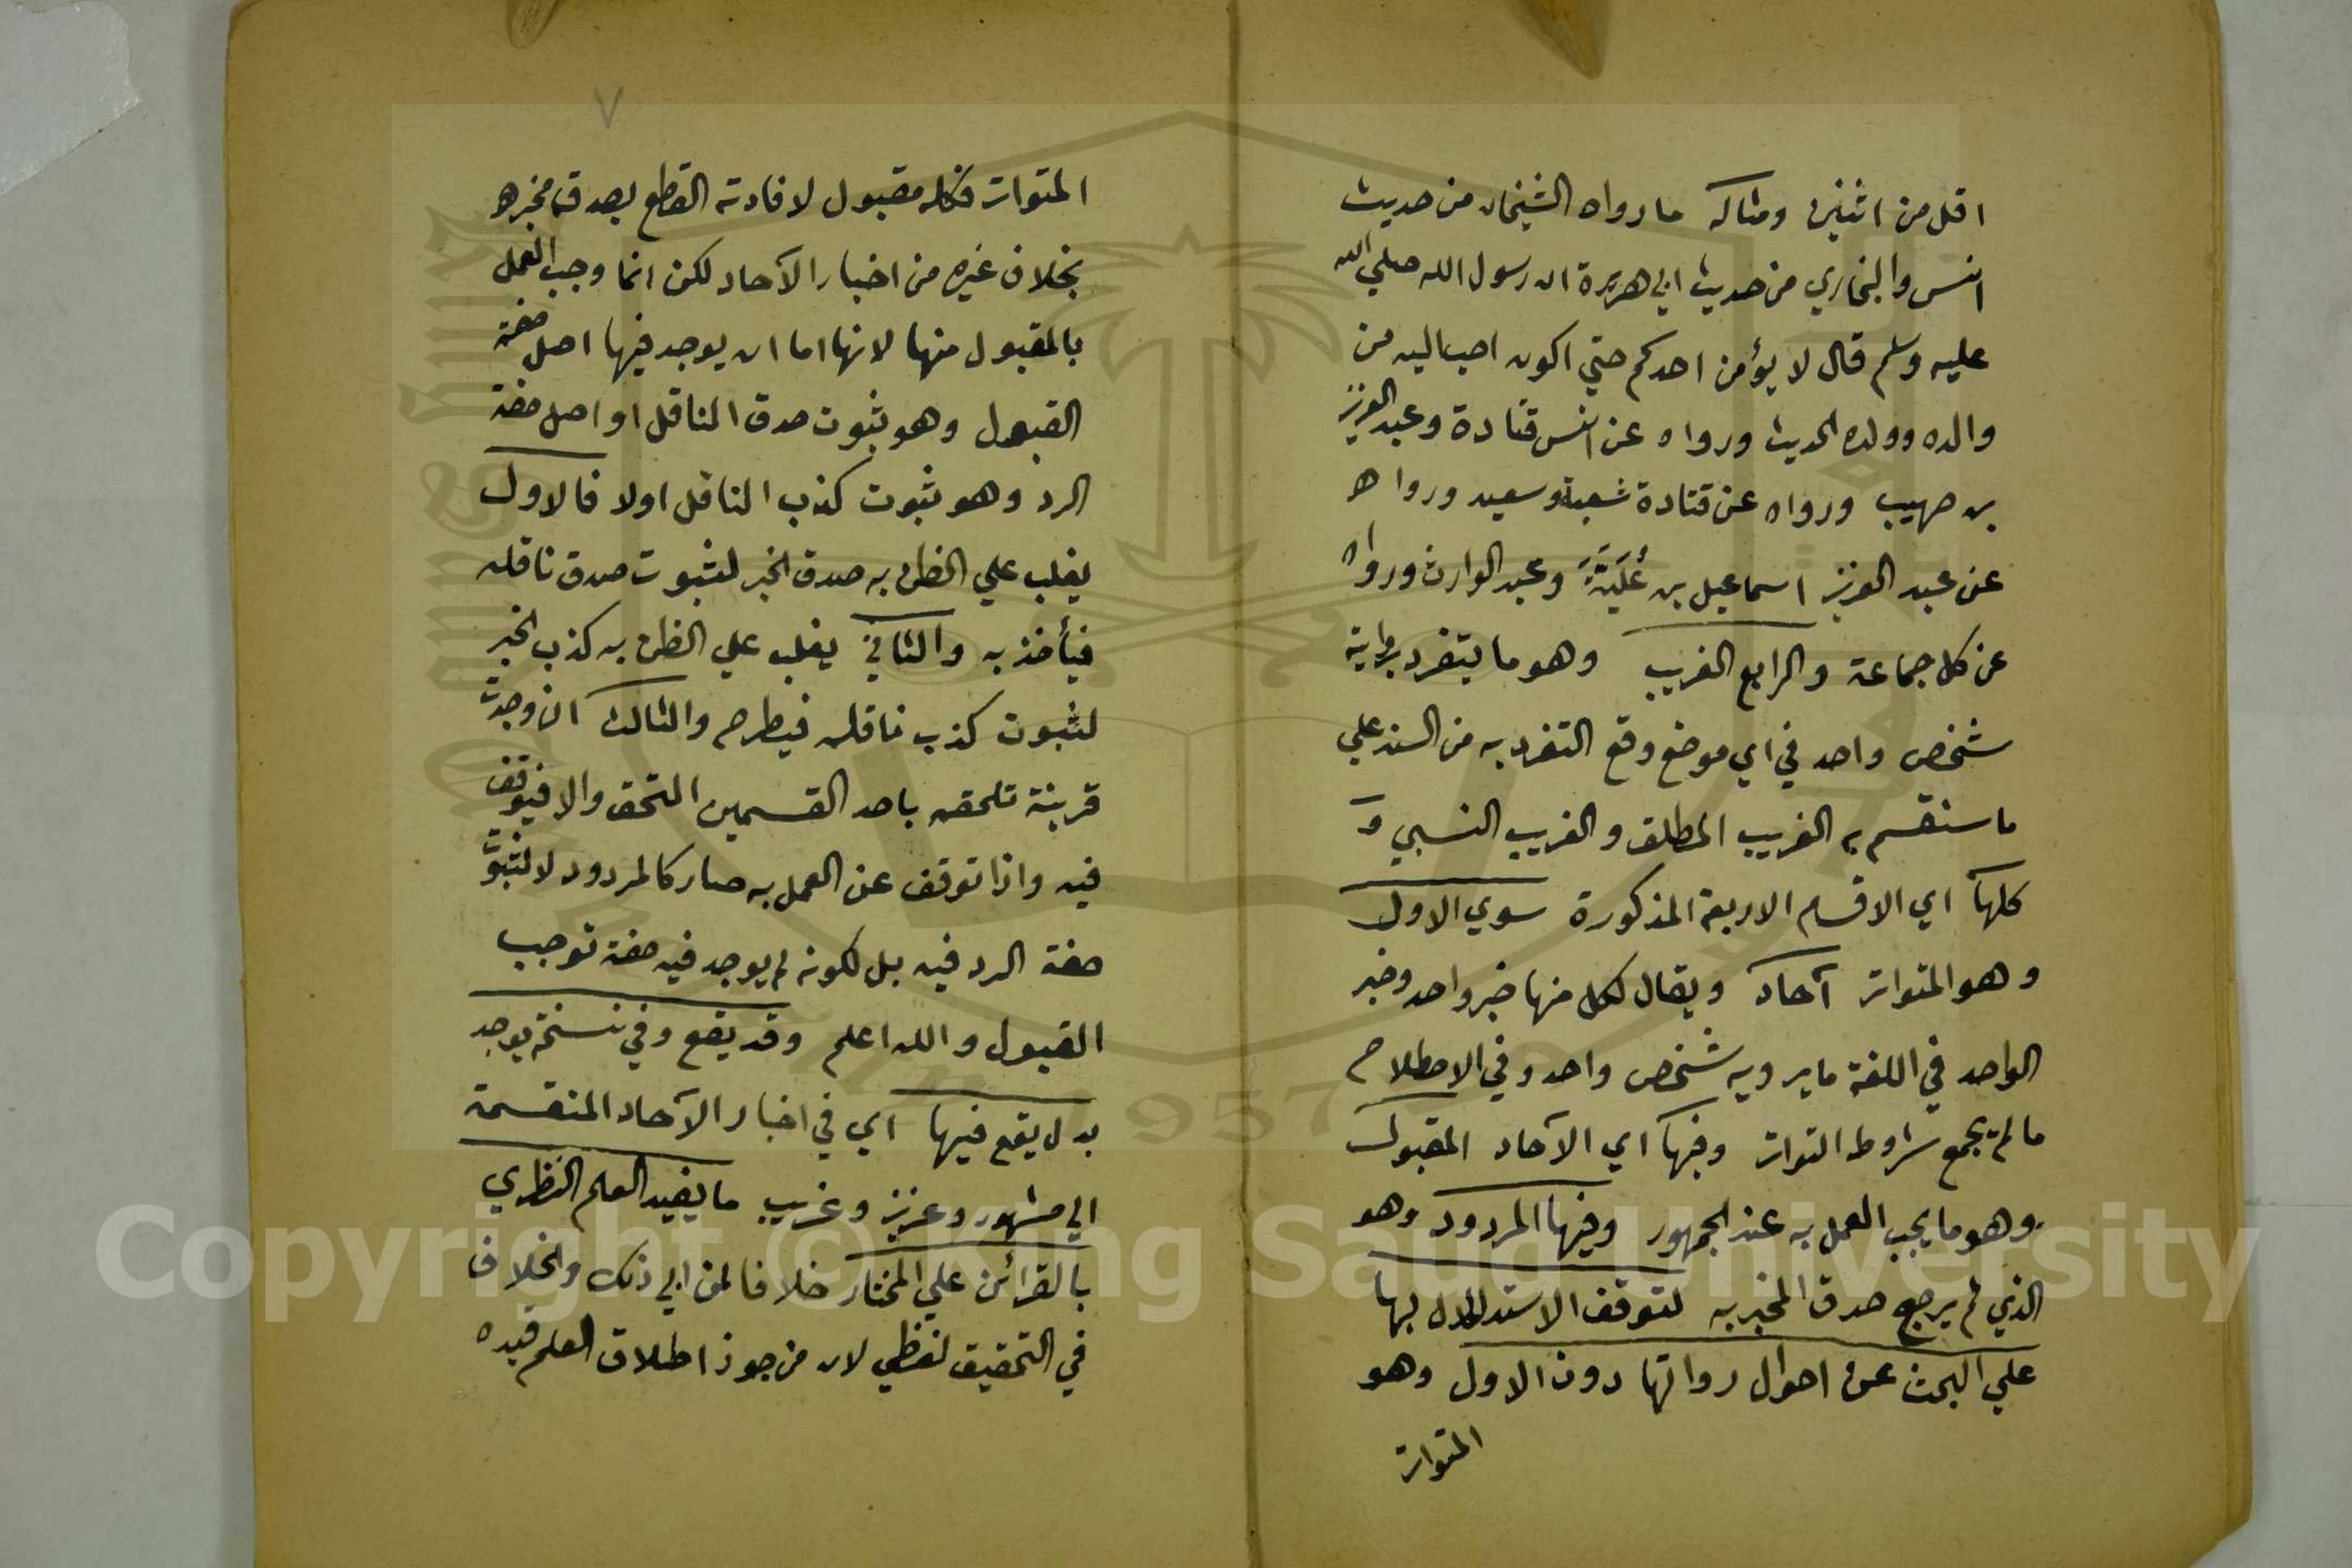 اقل من اثنين ومثاله ما رواه الشيخان من حديث
انس والبخاري من حديث ابي هريرة ان رسول الله صلي الله
عليه وسلم قال لا يؤمن احدكم حتي اكون احب اليه من
والده وولده الحديث ورواه عن انس قتادة وعبد العزيز
بن صهيب ورواه عن قتادة شعبة وسعيد ورواه
عن عبد العزيز اسماعيل بن عُلَيَّةَ وعبد الوارث ورواه
عن كل جماعة والرابع الغريب وهو ما يتفرد بروايته
شخص واحد في اي موضع وقع التفرد به من السند علي
ما سنقسم به الغريب المطلق والغريب النسبي و
كلها اي الاقسام الاربعة المذكورة سوي الاول
وهو المتواتر آحاد ويقال لكل منها خبر واحد وخبر
الواحد في اللغة ما يرويه شخص واحد وفي الاصطلاح
ما لم يجمع شروط التواتر وفيها اي الآحاد المقبول
وهو ما يجب العمل به عند الجمهور وفيها المردود وهو
الذي لم يرجح صدق المخبر به لتوقف الاستدلال بها
علي البحث عن احوال رواتها دون الاول وهو
المتواتر
٧
المتواتر فكله مقبول لافادته القطع بصدق مخبره
بخلاف غيره من اخبار الآحاد لكن انما وجب العمل
بالمقبول منها لانها اما ان يوجد فيها اصل صفة
القبول وهو ثبوت صدق الناقل او اصل صفة
الرد وهو ثبوت كذب الناقل اولا فالاول
يغلب علي الظن به صدق الخبر لثبوت صدق ناقله
فيأخذ به والثاني يغلب علي الظن به كذب الخبر
لثبوت كذب ناقله فيطرح والثالث ان وجدت
قرينة تلحقه باحد القسمين التحق والا فيتوقف
فيه واذا توقف عن العمل به صار كالمردود لا لثبوت
صفة الرد فيه بل لكونه لم يوجد فيه صفة توجب
القبول والله اعلم وقد يقع وفي نسخة يوجد
بدل يقع فيها اي في اخبار الآحاد المنقسمة
الي مشهور وعزيز وغريب ما يفيد العلم النظري
بالقرائن علي المختار خلافا لمن ابي ذلك والخلاف
في التحقيق لفظي لان من جوز اطلاق العلم قيده
Copyright © King Saud University
1957